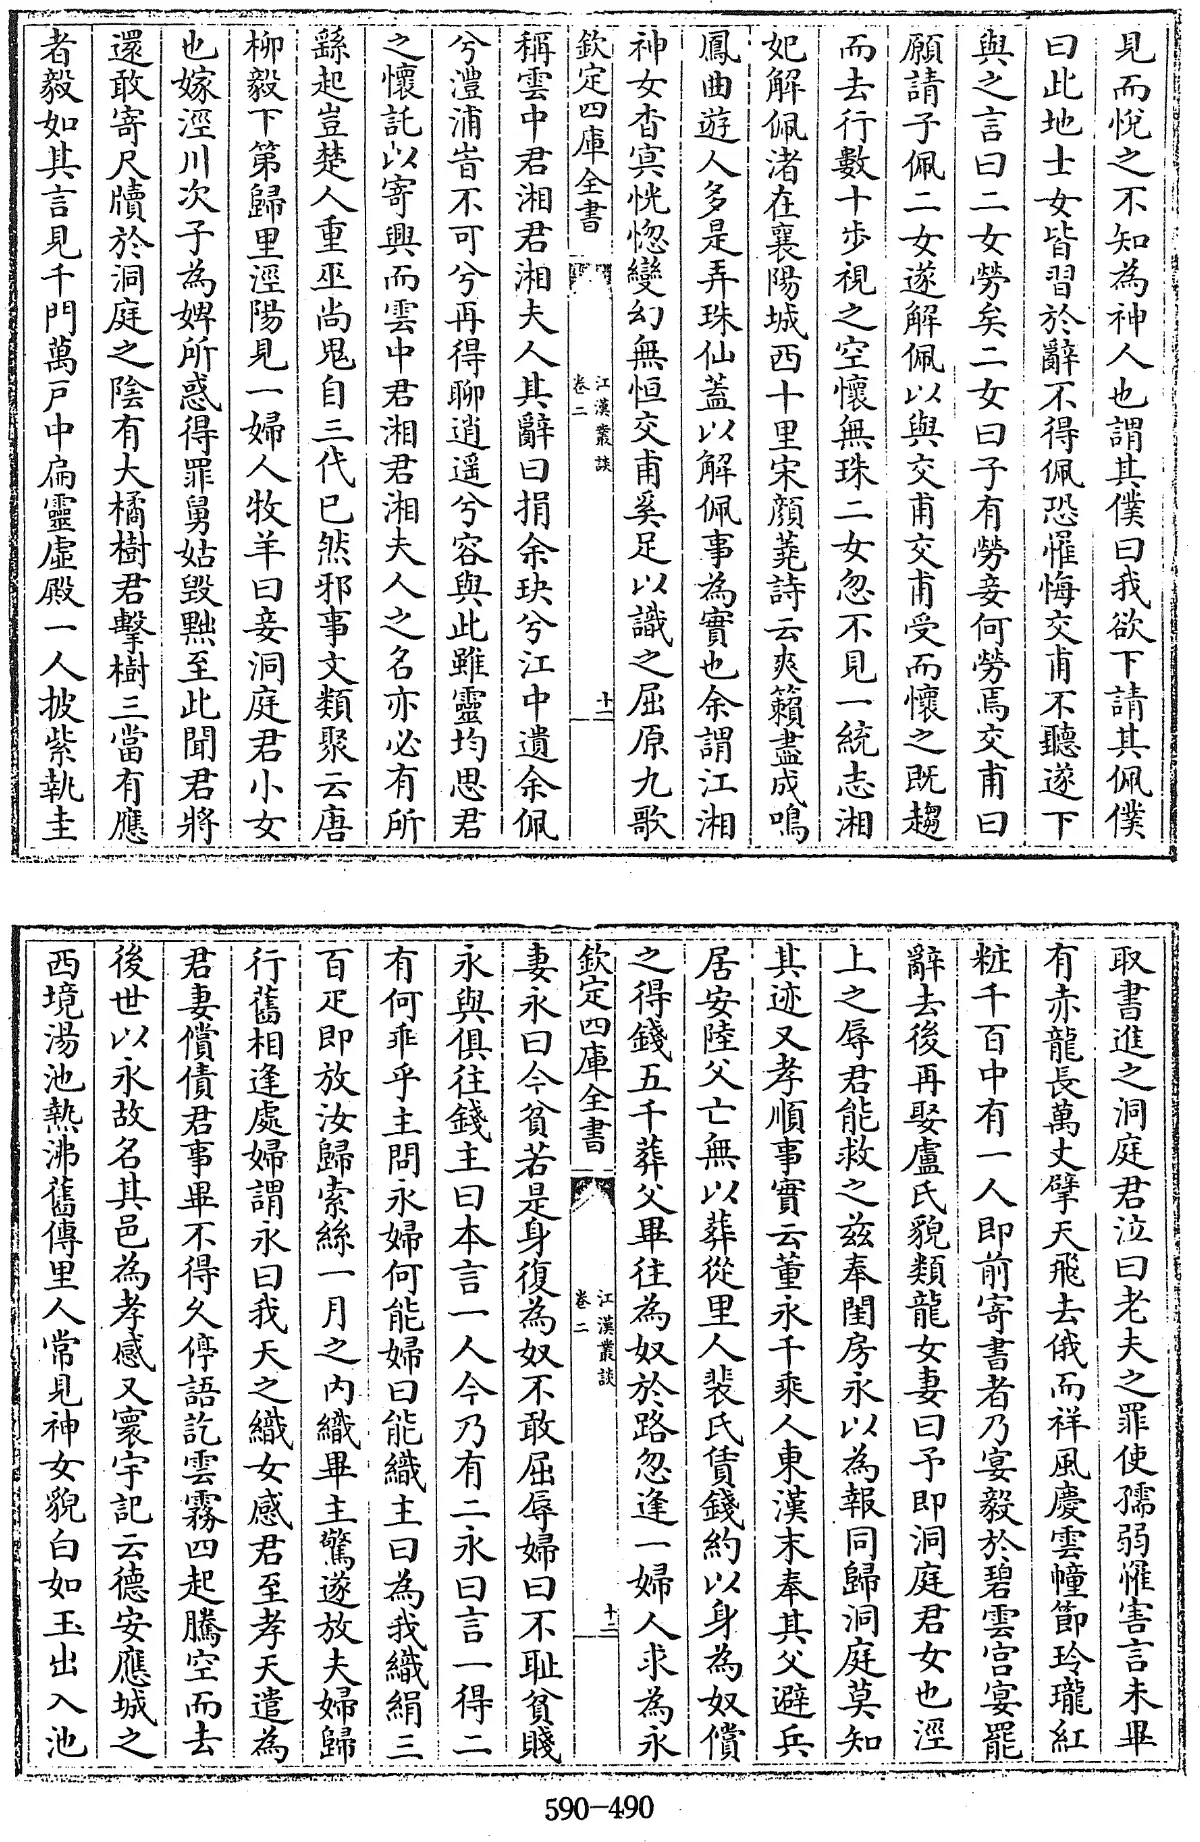 見而悅之不知為神人也謂其僕曰我欲下請其佩僕
曰此地士女皆習於辭不得佩恐懼悔交甫不聽遂下
與之言曰二女勞矣二女曰子有勞妾何勞焉交甫曰
願請子佩二女遂解佩以與交甫交甫受而懷之既趨
而去行數十步視之空懷無珠二女忽不見一統志湘
妃解佩渚在襄陽城西十里宋顔蕘詩云爽籟盡成鳴
鳳曲遊人多是弄珠仙蓋以解佩事為實也余謂江湘
神女杳㝠恍惚變幻無恒交甫奚足以識之屈原九歌
欽定四庫全書
江漢叢談
卷二
十一
稱雲中君湘君湘夫人其辭曰捐余玦兮江中遺余佩
兮澧浦旹不可兮再得聊逍遥兮容與此雖靈均思君
之懷託以寄興而雲中君湘君湘夫人之名亦必有所
繇起豈楚人重巫尚鬼自三代已然邪事文類聚云唐
柳毅下第歸里涇陽見一婦人牧羊曰妾洞庭君小女
也嫁涇川次子為婢所惑得罪舅姑毁黜至此聞君將
還敢寄尺牘於洞庭之陰有大橘樹君擊樹三當有應
者毅如其言見千門萬戸中扁靈虛殿一人披紫執圭
取書進之洞庭君泣曰老夫之罪使孺弱罹害言未畢
有赤龍長萬丈擘天飛去俄而祥風慶雲幢節玲瓏紅
粧千百中有一人即前寄書者乃宴毅於碧雲宫宴罷
辭去後再娶盧氏貌類龍女妻曰予即洞庭君女也涇
上之辱君能救之兹奉閨房永以為報同歸洞庭莫知
其迹又孝順事實云董永千乘人東漢末奉其父避兵
居安陸父亡無以葬從里人裴氏賃錢約以身為奴償
之得錢五千葬父畢往為奴於路忽逢一婦人求為永
欽定四庫全書
江漢叢談
卷二
十二
妻永曰今貧若是身復為奴不敢屈辱婦曰不耻貧賤
永與俱往錢主曰本言一人今乃有二永曰言一得二
有何乖乎主問永婦何能婦曰能織主曰為我織絹三
百疋即放汝歸索絲一月之內織畢主驚遂放夫婦歸
行舊相逢處婦謂永曰我天之織女感君至孝天遣為
君妻償債君事畢不得久停語訖雲霧四起騰空而去
後世以永故名其邑為孝感又寰宇記云德安應城之
西境湯池熱沸舊傳里人常見神女貌白如玉出入池
590-490